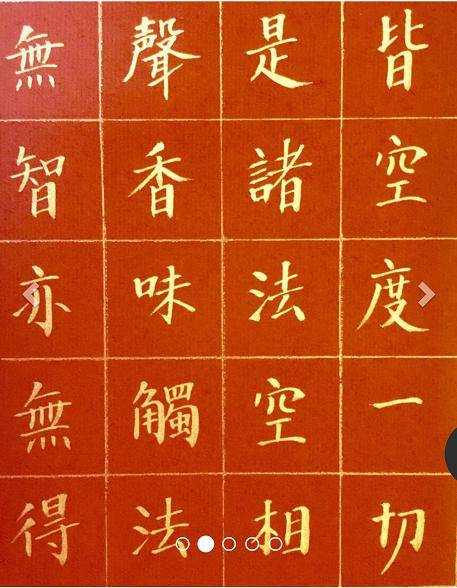 皆空度一切
是諸法空相
聲香味觸法
無智亦無得